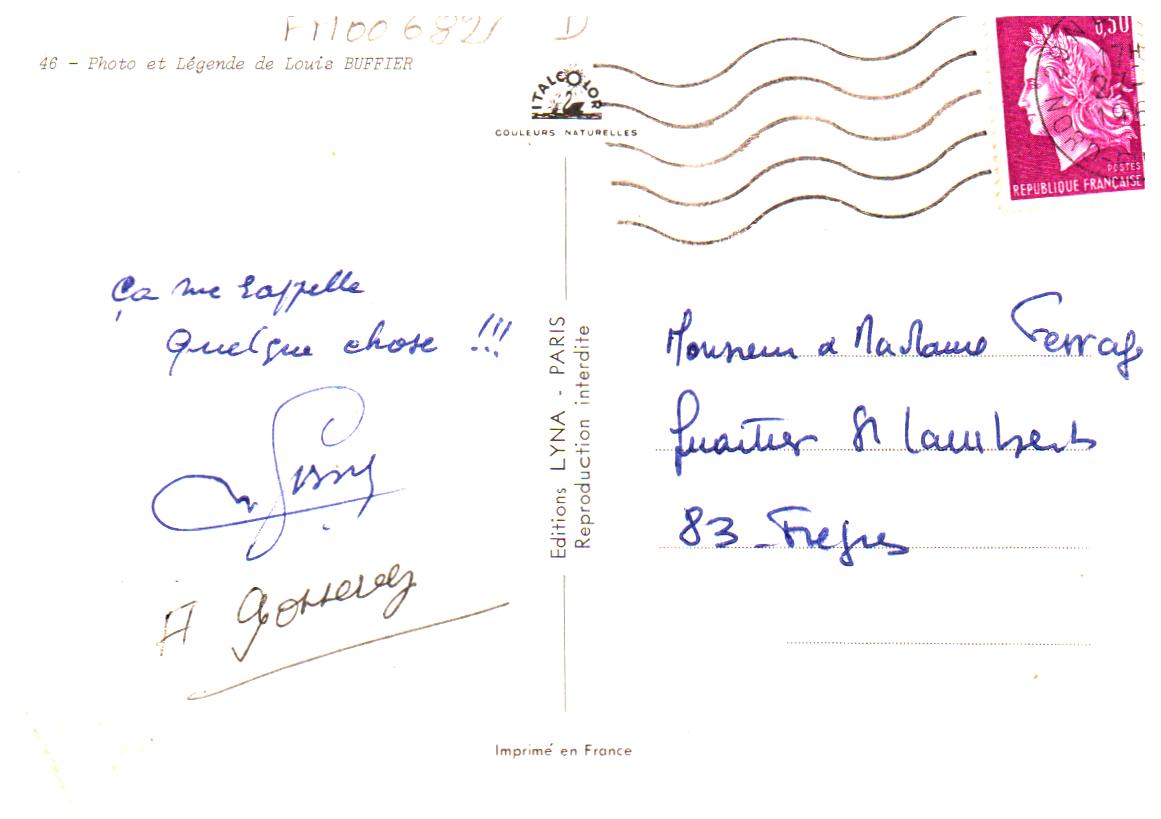 46 - Photo et Légende de Louis BUFFIER
VITALCOLOR
COULEURS NATURELLES
0,30
POSTES
REPUBLIQUE FRANÇAISE
Ça me rappelle
quelque chose !!!
Editions LYNA - PARIS
Reproduction interdite
Monsieur & Madame
Quartier St Lambert
83 - Frejus
A
Imprimé en France